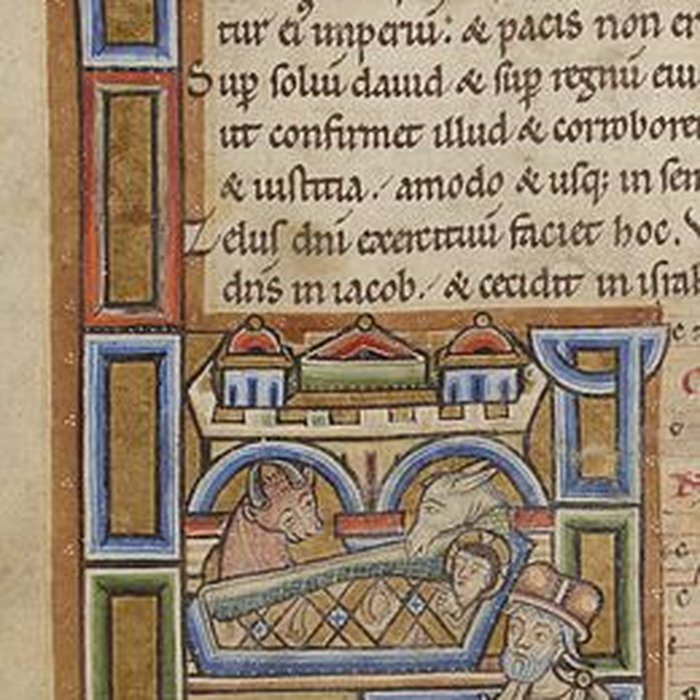 tur ei imperiū: & pacis non er
Sup̱ soliū dauid & sup̱ regnū eiu
ut confirmet illud & corrobore
& iustitia. amodo & usq; in sem
Zelus dnī exercituū faciet hoc.
dns̄ in iacob. & cecidit in isra